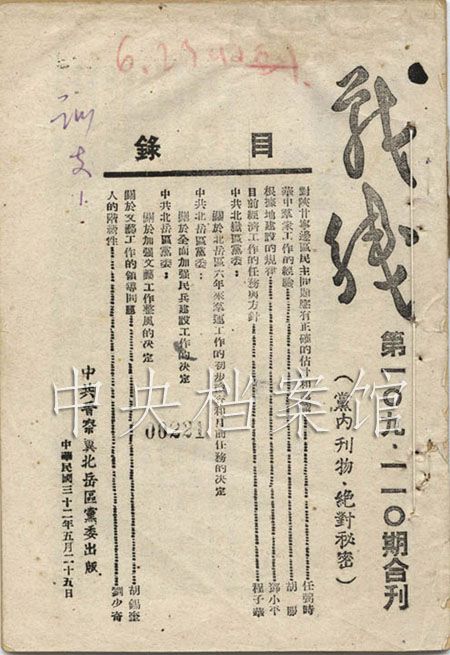 戰綫
第一〇九·一一〇期合刊
（黨內刊物·絕對秘密）
目錄
對陝甘寧邊區民主問題應有正確的估計 任弼時
華中羣衆工作的經驗 胡勝
根據地建設的規律 鄧小平
目前經濟工作的任務與方針 程子華
中共北嶽區黨委：
關於北岳區六年來羣運工作的初步總結和目前任務的決定
中共北岳區黨委：
關於全面加强民兵建設工作的決定
關於加强文藝工作整風的決定
關於文藝工作的領導問題 胡錫奎
人的階級性 劉少奇
中共晉察冀北岳區黨委出版
中華民國三十二年五月二十五日
中央档案馆